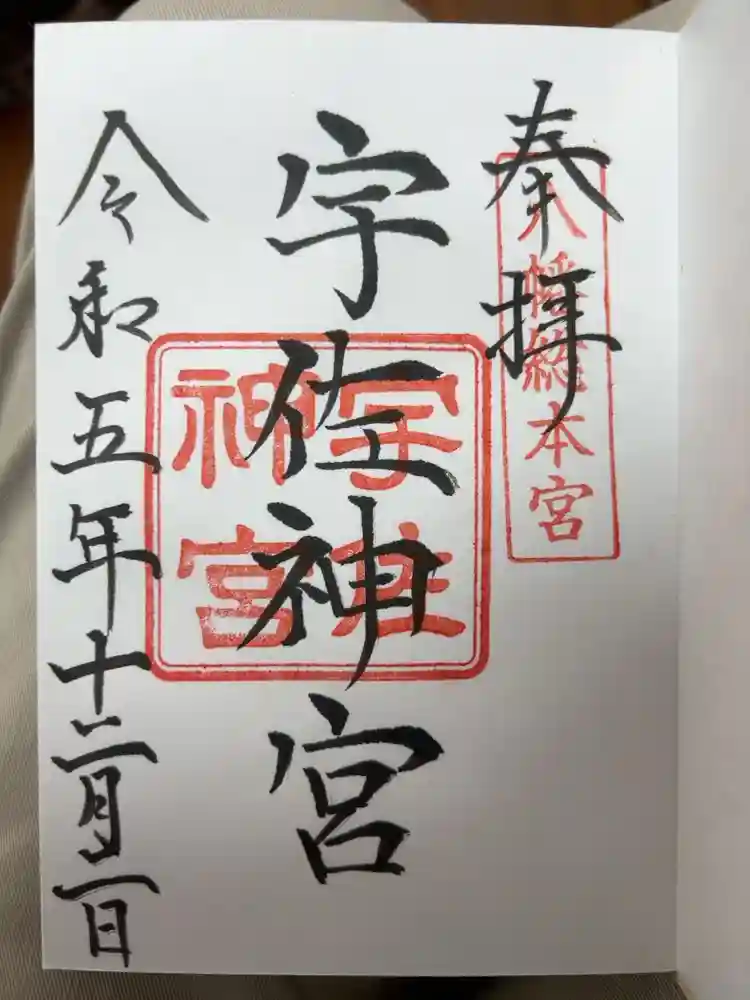 奉拝
八幡総本宮
宇佐神宮
宇佐
神宮
令和五年十二月二日